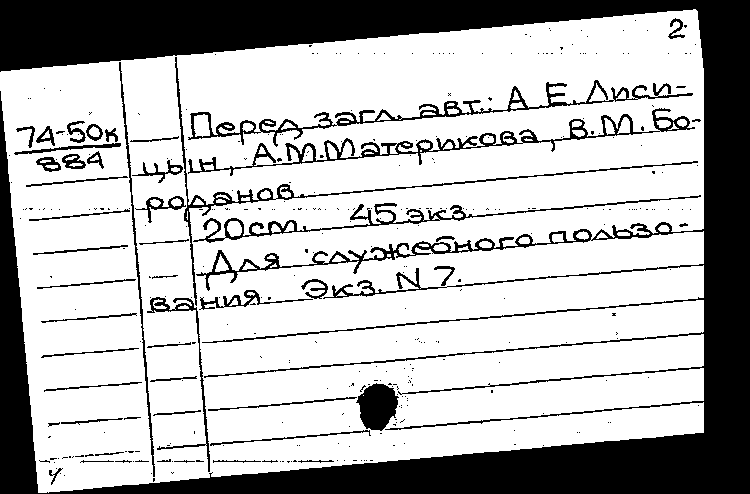 2
74-50к
884
Перед загл. авт.: А Е. Лиси-
цын, А.М.Материкова, В.М. Бо-
роданов.
20см. 45 экз.
Для служебного пользо-
вания. Экз. N 7.